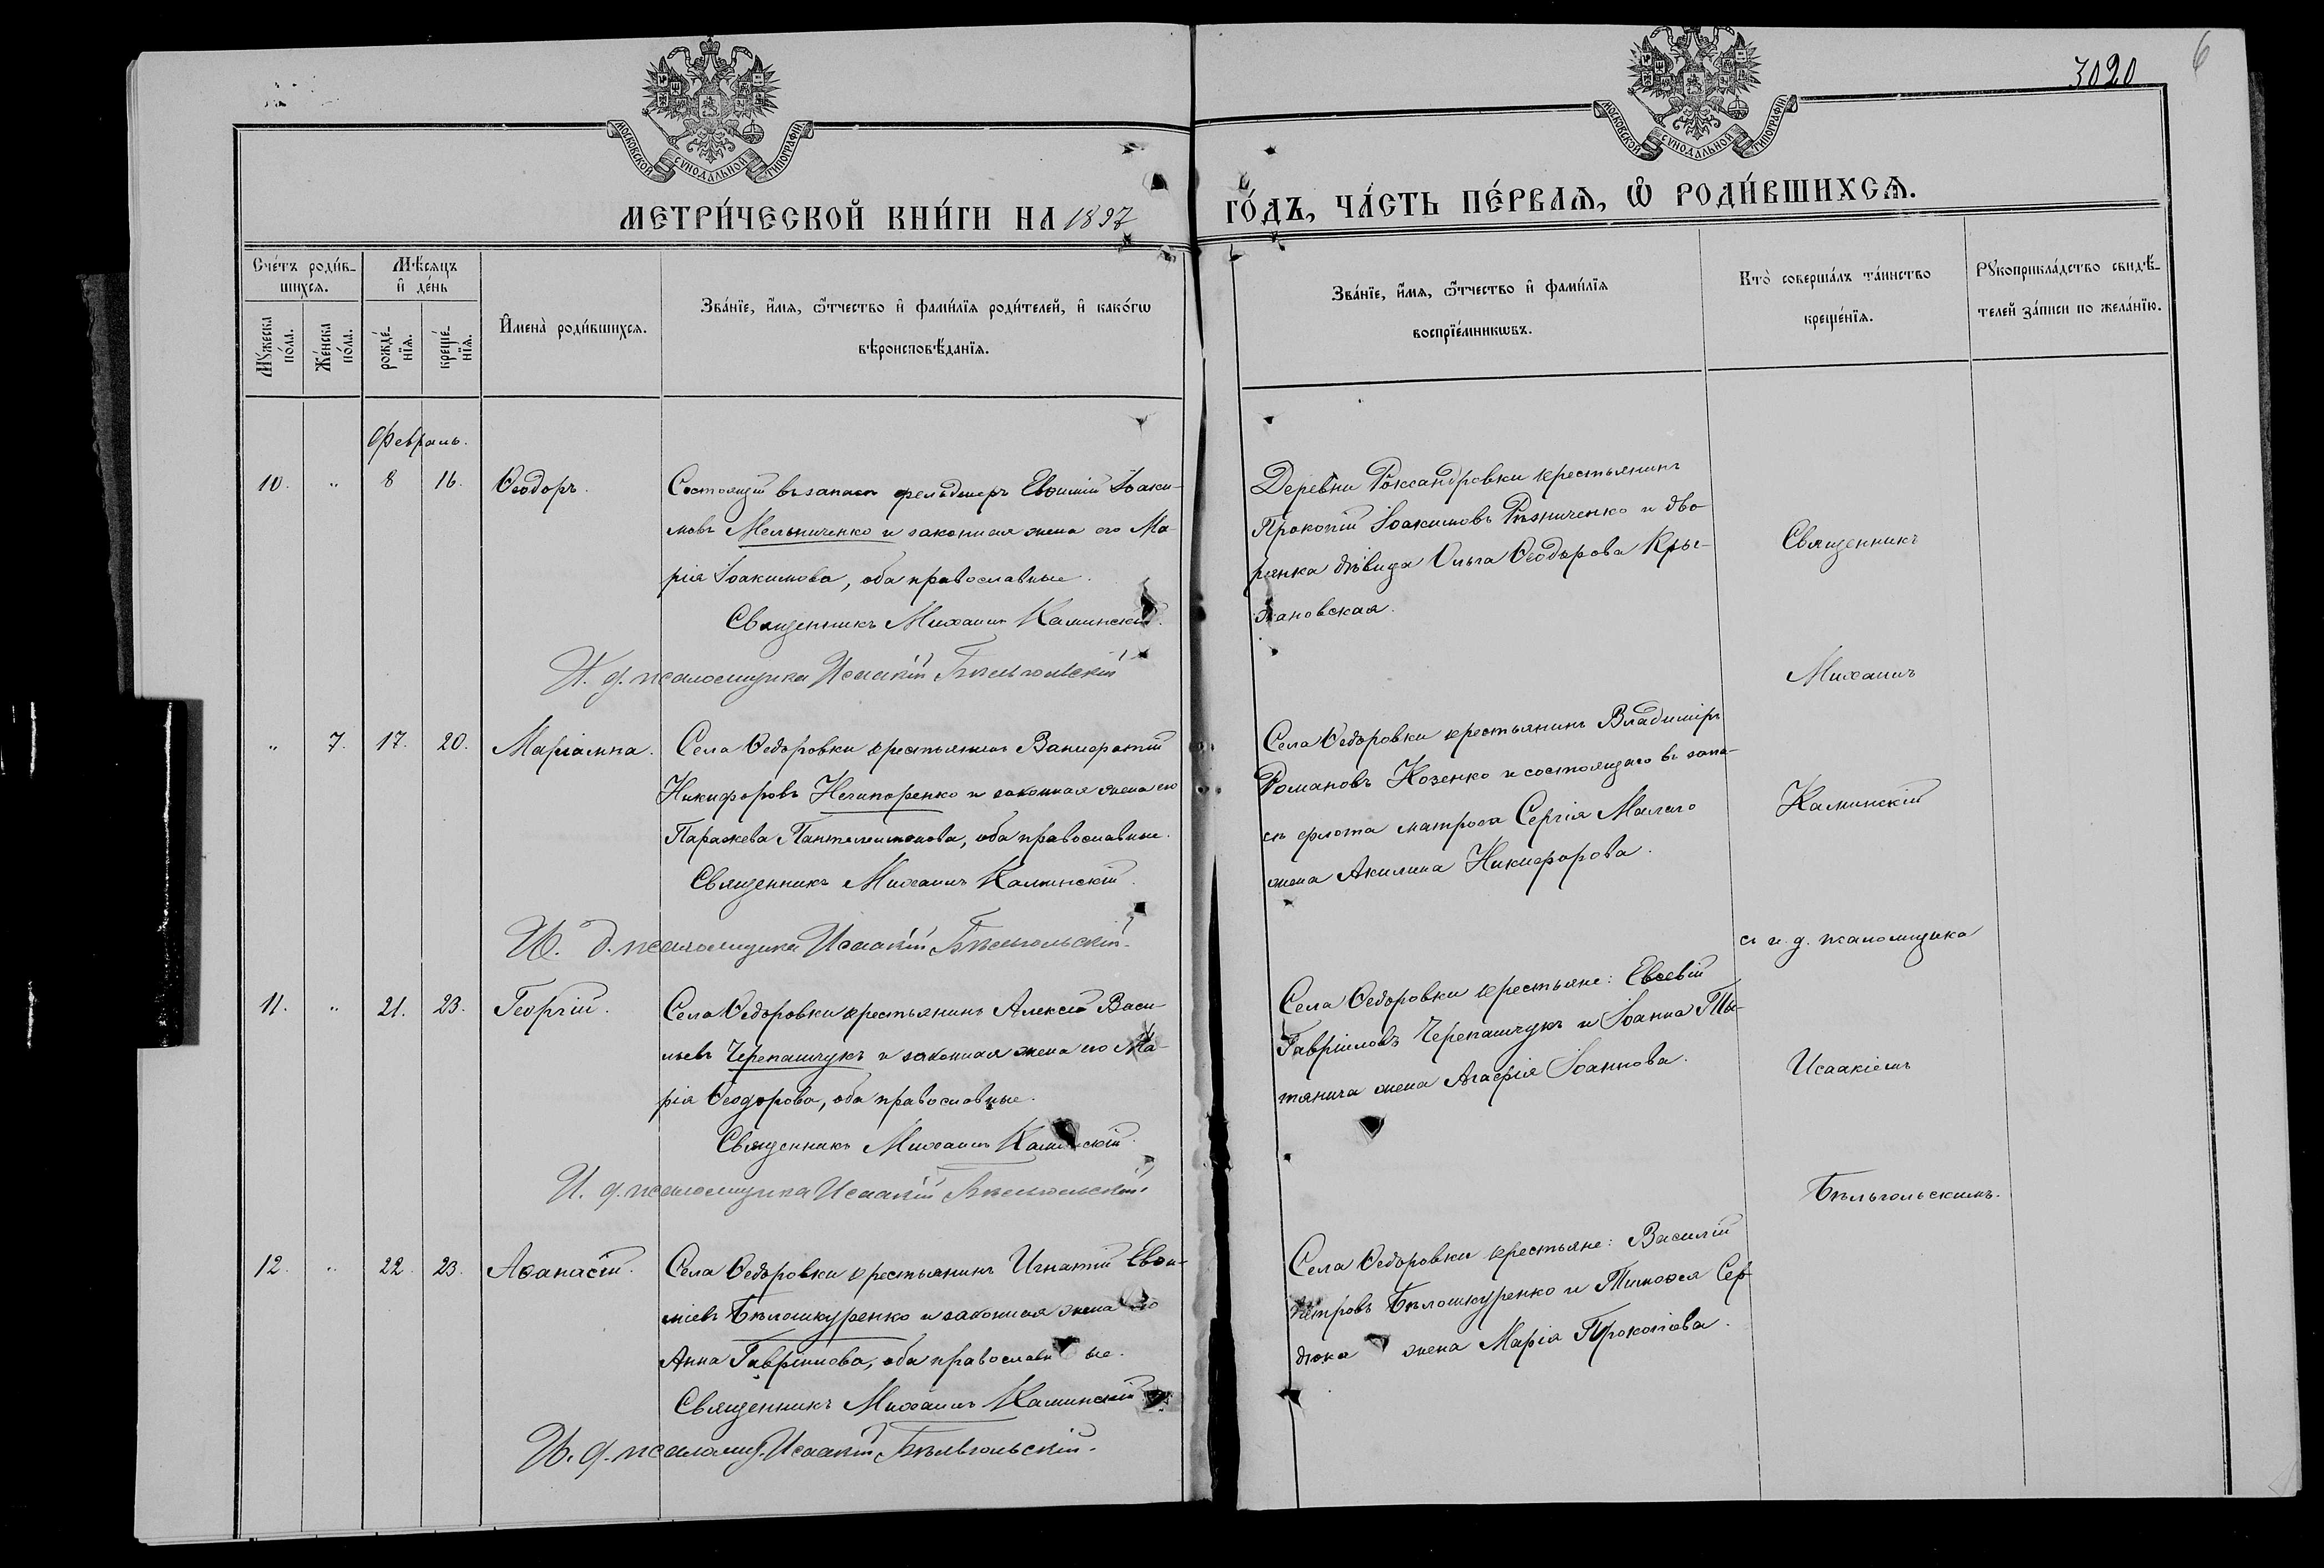 3020
6
МОСКОВСКОЙ СѴНОДАЛЬНОЙ ТИПОГРАФІИ
МОСКОВСКОЙ СѴНОДАЛЬНОЙ ТИПОГРАФІИ
МЕТРИ́ЧЕСКОЙ КНИ́ГИ НА 1897
ГО́ДЪ, ЧА́СТЬ ПЕ́РВАѦ, Ѿ РОДИ́ВШИХСѦ.
Сче́тъ роди́в-
шихсѧ.
Мꙋ́жеска
по́ла.
Же́нска
по́ла.
Мѣ́сѧцъ
и҆ де́нь
рожде́-
нїѧ.
креще́-
нїѧ.
И҆мена̀ роди́вшихсѧ.
Зва́нїе, и҆́мѧ, ѻ҆́тчество и҆ фами́лїѧ роди́телей, и҆ како́гѡ
вѣроисповѣ́данїѧ.
Зва́нїе, и҆́мѧ, ѻ҆́тчество и҆ фами́лїѧ
воспрїе́мникѡвъ.
Кто̀ соверша́лъ та́инство
креще́нїѧ.
Рꙋкоприкла́дство свидѣ́-
телей за́писи по жела́нїю.
Февраль.
10. „ 8 16. Ѳеодоръ.
Состоящій въ запасѣ фельдшеръ Евѳимій Іоаки-
мовъ Мельниченко и законная жена его Ма-
рія Іоакимова, оба православные.
Священникъ Михаилъ Каминскій.
И. д. псаломщика Исаакій Бѣльгольскій
Деревни Роксандровки крестьянинъ
Прокопій Іоакимовъ Рѣзниченко и дво-
рянка дѣвица Ольга Ѳеодорова Кры-
жановская.
„ 7. 17. 20. Маріамна.
Села Ѳедоровки крестьянинъ Вонифатій
Никифоровъ Нечипоренко и законная жена его
Параскева Пантелеимонова, оба православные.
Священникъ Михаилъ Каминскій.
И. д. псаломщика Исаакій Бѣльгольскій.
Села Ѳедоровки крестьянинъ Владиміръ
Романовъ Козенко и состоящаго въ запа-
сѣ флота матроса Сергія Малаго
жена Акилина Никифорова.
11. „ 21. 23. Георгій.
Села Ѳедоровки крестьянинъ Алексій Васи-
льевъ Черепашчукъ и законная жена его Ма-
рія Ѳеодорова, оба православные.
Священникъ Михаилъ Каминскій.
И. д. псаломщика Исаакій Бѣльгольскій.
Села Ѳедоровки крестьяне: Евсевій
Гавріиловъ Черепашчукъ и Іоанна Ты-
тянича жена Агафія Іоаннова.
12. „ 22. 23. Аѳанасій.
Села Ѳедоровки крестьянинъ Игнатій Евѳи-
міевъ Бѣлошкуренко и законная жена его
Анна Гавріилова, оба православные.
Священникъ Михаилъ Каминскій.
И. д. псаломщ. Исаакій Бѣльгольскій.
Села Ѳедоровки крестьяне: Василій
Петровъ Бѣлошкуренко и Тимоѳея Сер-
дюка жена Марія Прокопіева.
Священникъ
Михаилъ
Каминскій
съ и. д. псаломщика
Исаакіемъ
Бѣльгольскимъ.